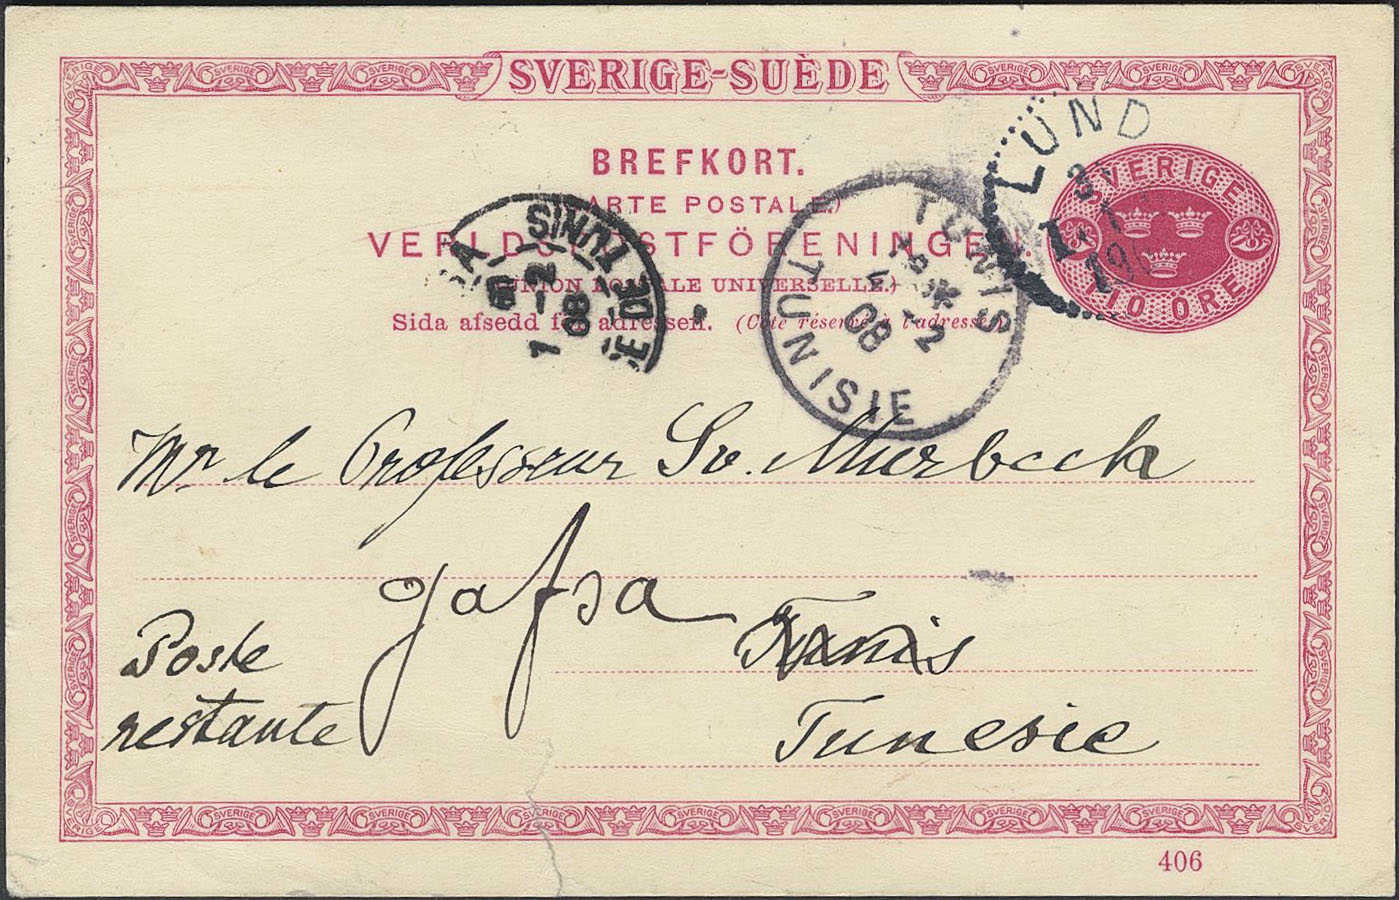 SVERIGE-SUÈDE
BREFKORT.
CARTE POSTALE.)
VERLDSPOSTFÖRENINGEN.
(UNION POSTALE UNIVERSELLE.)
Sida afsedd för adressen. (Côté réservé à l'adresse.)
LUND
SVERIGE
10 ÖRE
TUNIS
4 -2
08
TUNISIE
DE TUNIS
2
08
Mr le Professeur Sv. Murbeck
Gafsa
Tunis
Poste
restante
Tunesie
406